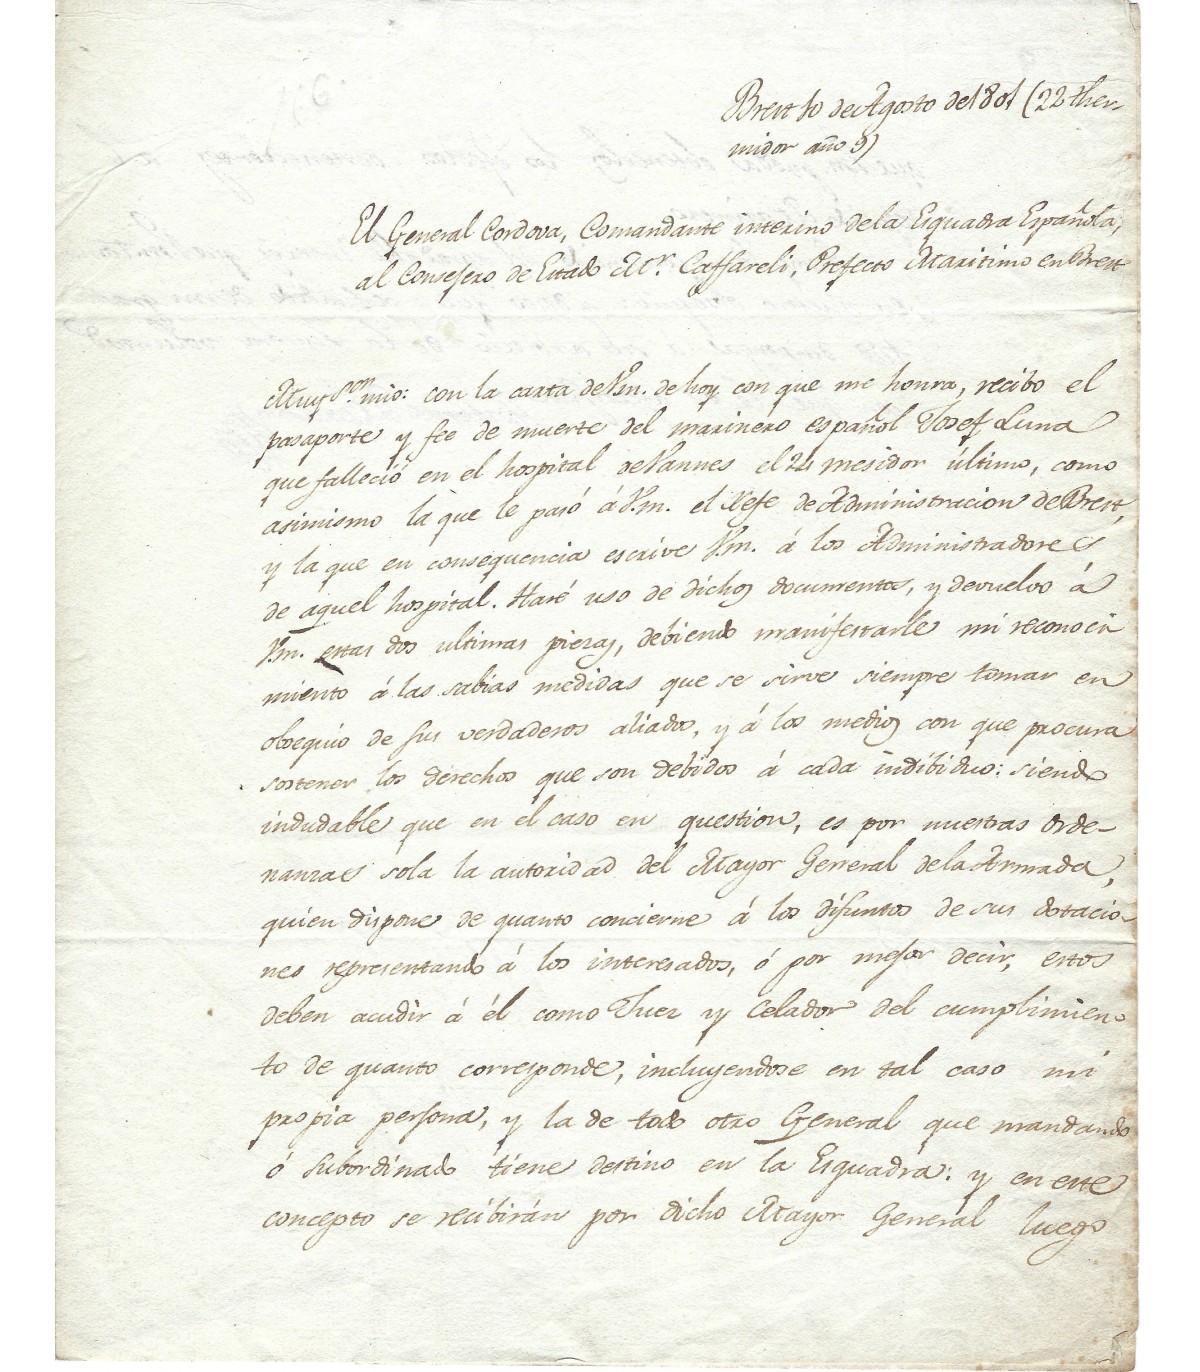 Brest 10 de Agosto de 1801 (22 Ther-
midor año 9)
El General Cordova, Comandante interino de la Esquadra Española,
al Consejero de Estado Mr. Caffareli, Prefecto Maritimo en Brest
Muy Sor. mio: con la carta de Vm. de hoy con que me honra, recibo el
pasaporte y fee de muerte del marinero español Josef Luna
que falleció en el hospital de Vannes el 24 mesidor último, como
asimismo la que le pasó á Vm. el Xefe de Administracion de Brest,
y la que en consequencia escrive Vm. á los Administradores
de aquel hospital. Haré uso de dichos documentos, y devuelvo á
Vm. estas dos ultimas piezas, debiendo manifestarle mi reconoci
miento á las sabias medidas que se sirve siempre tomar en
obsequio de sus verdaderos aliados, y á los medios con que procura
sostener los derechos que son debidos á cada indibiduo: siendo
indudable que en el caso en question, es por nuestras Orde-
nanzas sola la autoridad del Mayor General de la Armada,
quien dispone de quanto concierne á los difuntos de sus dotacio-
nes representando á los interesados, ó por mejor decir, estos
deben acudir á él como Juez y Celador del cumplimien-
to de quanto corresponde, incluyendose en tal caso mi
propia persona, y la de todo otro General que mandando
ó subordinado tiene destino en la Esquadra: y en este
concepto se recibirán por dicho Mayor General luego